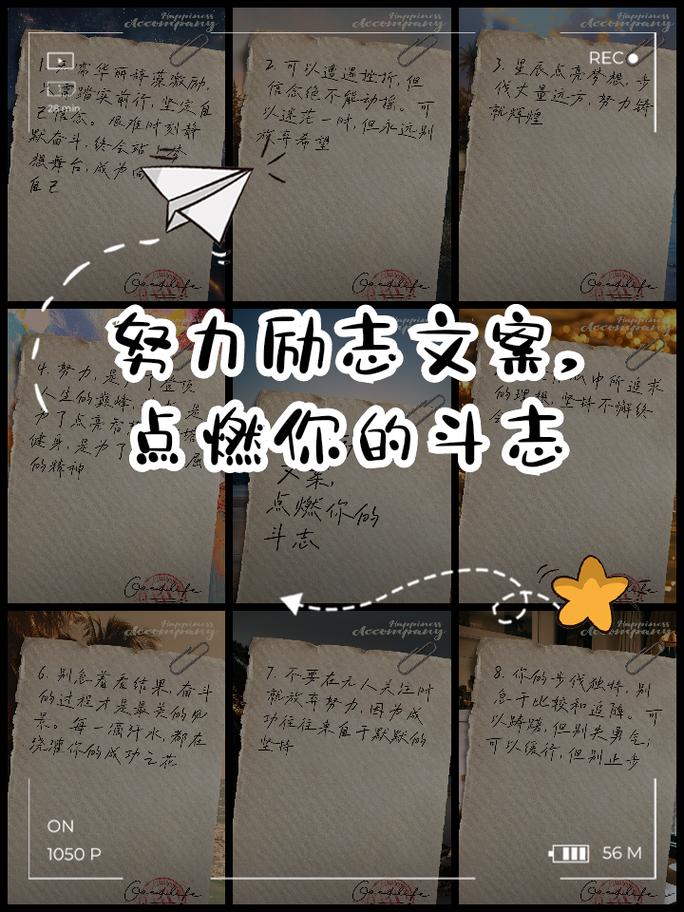 Happiness
Accompany
Happiness
Accompany
Happiness
Accompany
REC
28 min
1. 华丽辞藻激励,
踏实前行, 坚定自
己信念。艰难时刻静
默奋斗, 终会站上梦
想舞台, 成为
自己
Goodlife
2. 可以遭遇挫折, 但
信念绝不能动摇。可
以迷茫一时, 但永远别
放弃希望
Goodlife
3. 星辰点亮梦想, 步
伐丈量远方, 努力铸
就辉煌
Goodlife
努力励志文案,
点燃你的斗志
4. 努力, 是
人生的巅峰
为了点亮
健身, 是为了
的精神
Goodlife
文案,
点燃你的
斗志
中所追求
的理想, 坚持不懈终
Happiness
Accompany
Happiness
Accompany
Happiness
Accompany
6. 别急着看结果, 奋斗
的过程才是最美的风
景。每一滴汗水, 都在
浇灌你的成功之花
7. 不要在无人关注时
就放弃努力, 因为成
功往往来自于默默的
坚持
8. 你的步伐独特, 别
急于比较和追随。可
以踌躇, 但别失勇气;
可以缓行, 但别止步
ON
1050 P
56 M
Goodlife
Goodlife
Goodlife